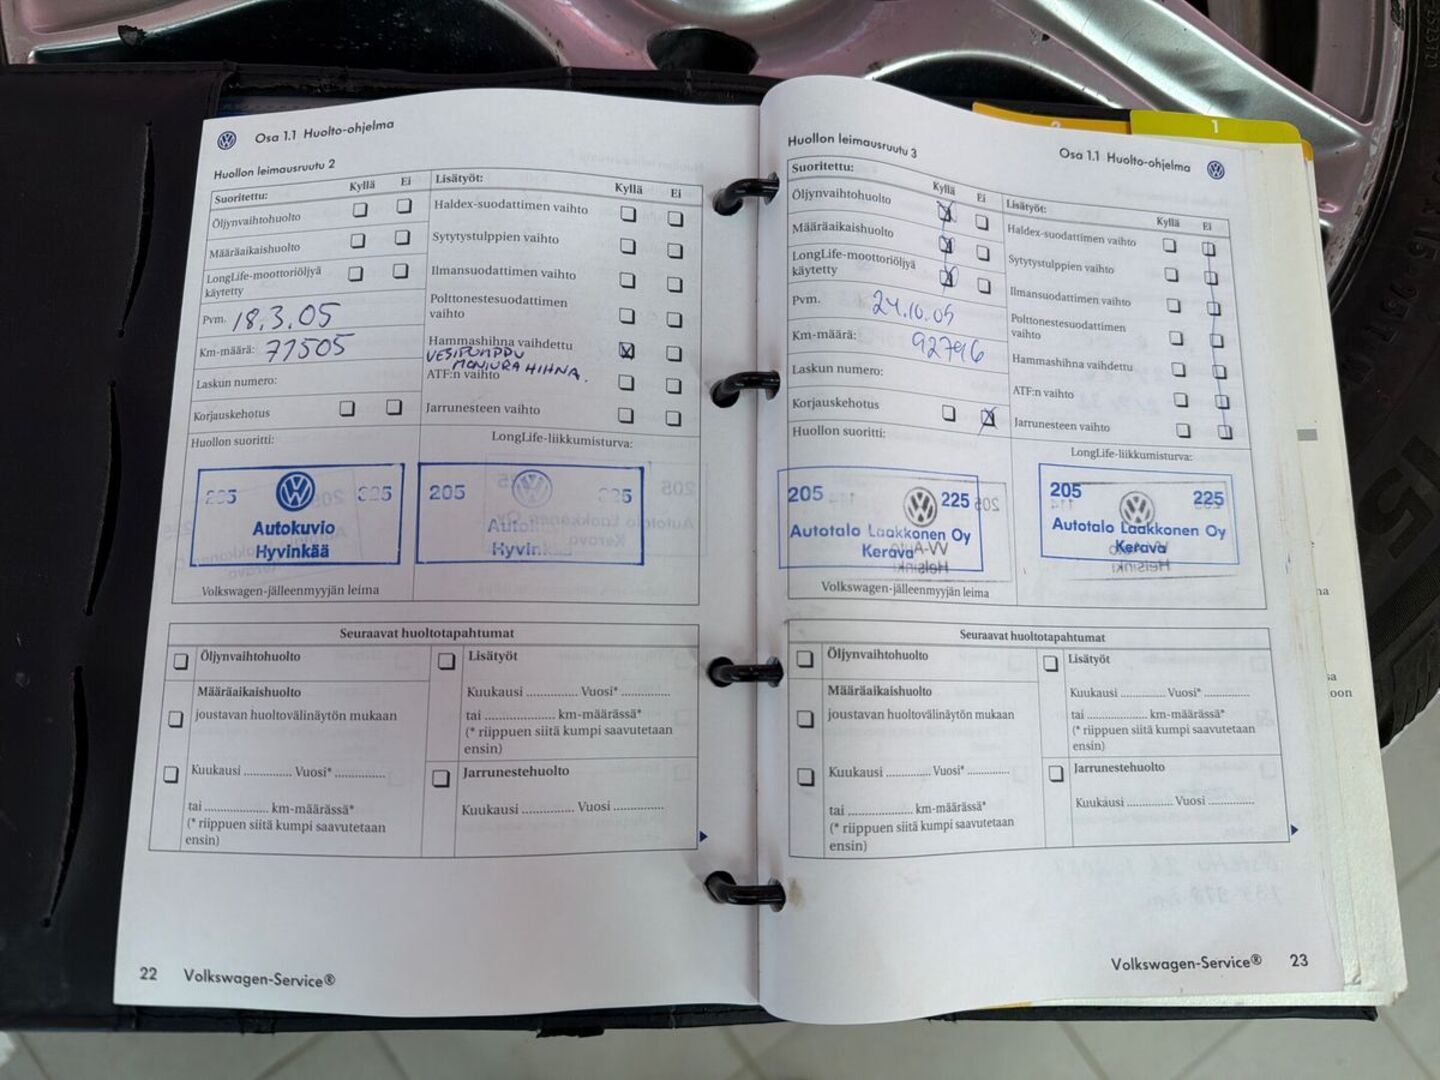 Osa 1.1 Huolto-ohjelma
Huollon leimausruutu 2
Suoritettu: Kyllä Ei
Öljynvaihtohuolto
Määräaikaishuolto
LongLife-moottoriöljyä
käytetty
Pvm. 18.3.05
Km-määrä: 77505
Laskun numero:
Korjauskehotus
Huollon suoritti:
Lisätyöt: Kyllä Ei
Haldex-suodattimen vaihto
Sytytystulppien vaihto
Ilmansuodattimen vaihto
Polttonestesuodattimen
vaihto
Hammashihna vaihdettu
VESIPUMPPU
MONIURAHIHNA.
ATF:n vaihto
Jarrunesteen vaihto
LongLife-liikkumisturva:
Autokuvio
Hyvinkää
205 225
Hyvink
Volkswagen-jälleenmyyjän leima
Seuraavat huoltotapahtumat
Öljynvaihtohuolto
Määräaikaishuolto
joustavan huoltovälinäytön mukaan
Kuukausi .............. Vuosi* ..............
tai .................... km-määrässä*
(* riippuen siitä kumpi saavutetaan
ensin)
Lisätyöt
Kuukausi .............. Vuosi* ..............
tai .................... km-määrässä*
(* riippuen siitä kumpi saavutetaan
ensin)
Jarrunestehuolto
Kuukausi .............. Vuosi ..............
22 Volkswagen-Service®
Osa 1.1 Huolto-ohjelma
Huollon leimausruutu 3
Suoritettu: Kyllä Ei
Öljynvaihtohuolto
Määräaikaishuolto
LongLife-moottoriöljyä
käytetty
Pvm. 24.10.05
Km-määrä: 92796
Laskun numero:
Korjauskehotus
Huollon suoritti:
Lisätyöt: Kyllä Ei
Haldex-suodattimen vaihto
Sytytystulppien vaihto
Ilmansuodattimen vaihto
Polttonestesuodattimen
vaihto
Hammashihna vaihdettu
ATF:n vaihto
Jarrunesteen vaihto
LongLife-liikkumisturva:
205 225
Autotalo Laakkonen Oy
Kerava
205 225
Autotalo Laakkonen Oy
Kerava
Volkswagen-jälleenmyyjän leima
Seuraavat huoltotapahtumat
Öljynvaihtohuolto
Määräaikaishuolto
joustavan huoltovälinäytön mukaan
Kuukausi .............. Vuosi* ..............
tai .................... km-määrässä*
(* riippuen siitä kumpi saavutetaan
ensin)
Lisätyöt
Kuukausi .............. Vuosi* ..............
tai .................... km-määrässä*
(* riippuen siitä kumpi saavutetaan
ensin)
Jarrunestehuolto
Kuukausi .............. Vuosi ..............
Volkswagen-Service® 23
1